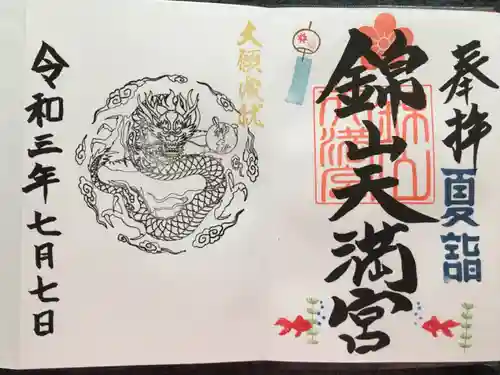 奉拝
夏詣
錦山天満宮
大願成就
令和三年七月七日